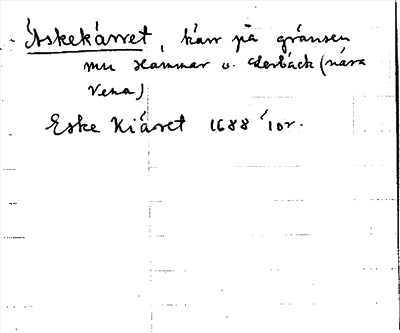 Åskekärret, kärr på gränsen
mu Hammar o. Lerbäck (nära
Vena)
Eske Kiäret 1688 ' 10 r.